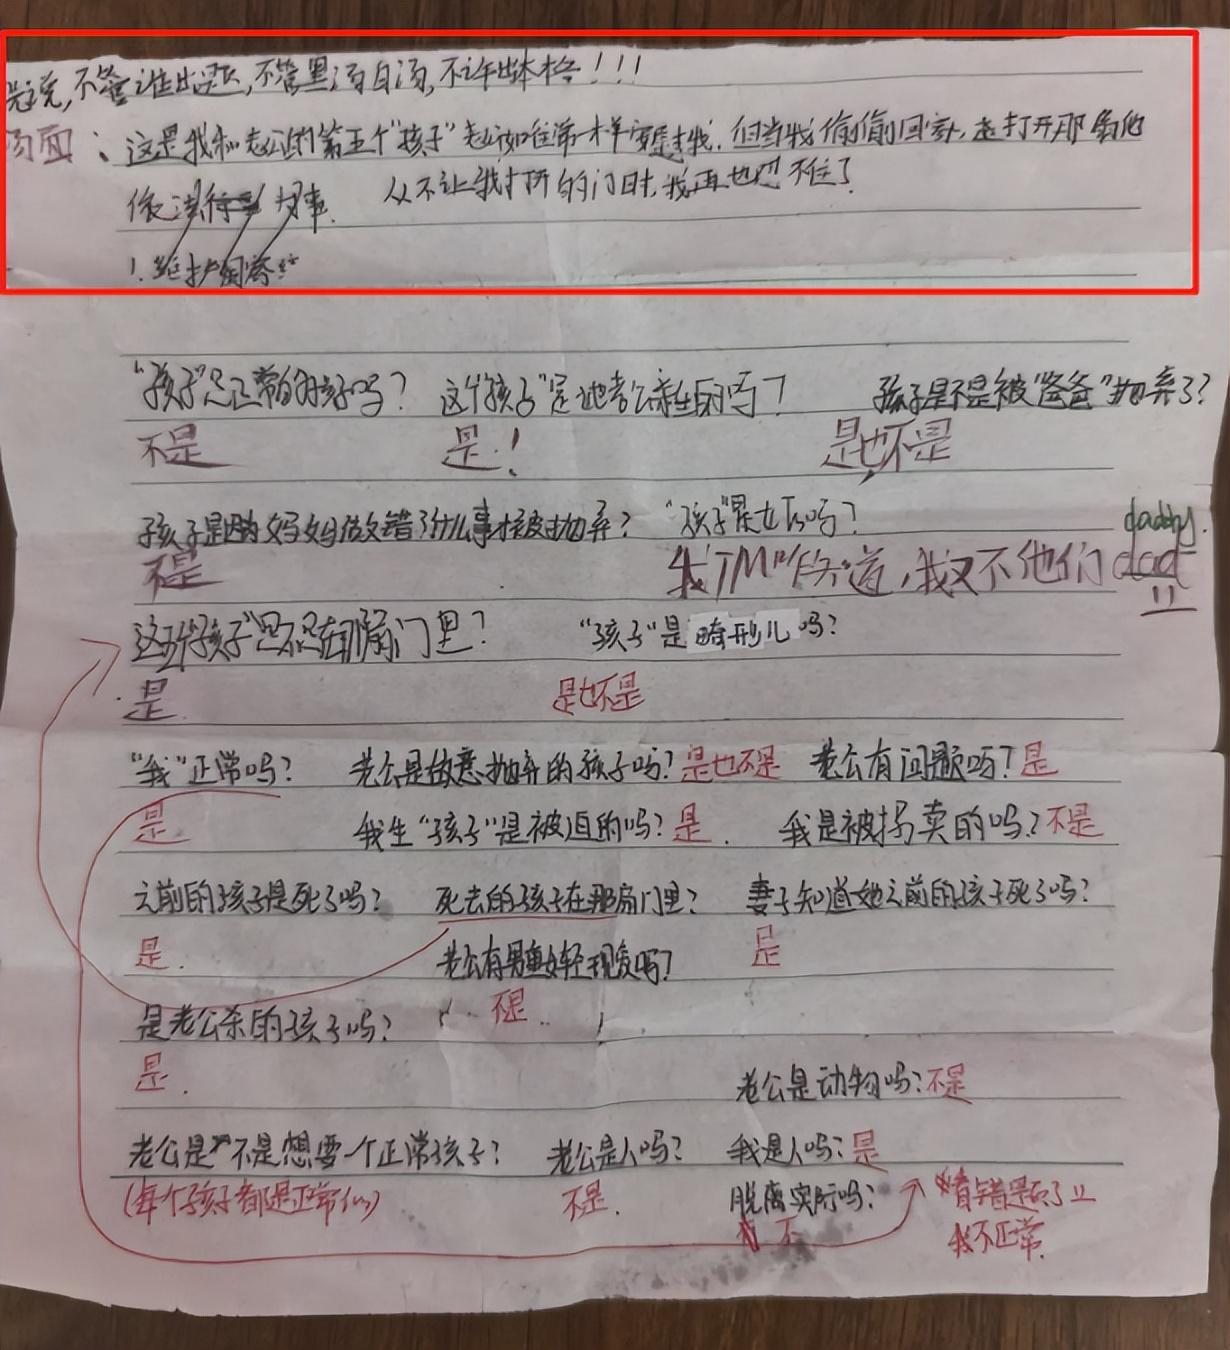 先说,不管谁出题,不管黑汤白汤,不许出本格!!!
汤面:这是我和老公的第五个“孩子”,他如往常一样安慰我.但当我偷偷回家,并打开那扇他
从不让我打开的门时,我再也忍不住了
1.
“孩子”是正常的孩子吗? 这个“孩子”是她老公亲生的吗? 孩子是不是被“爸爸”抛弃了?
不是 是! 是也不是
孩子是因为妈妈做错了什么事才被抛弃? “孩子”是女的吗?
不是 我TM咋知道,我又不他们 daddy. dad
这五个“孩子”是不是在那扇门里? “孩子”是畸形儿吗?
是. 是也不是
“我”正常吗? 老公是故意抛弃的孩子吗?是也不是 老公有问题吗?是
是 我生“孩子”是被迫的吗?是. 我是被拐卖的吗?不是
之前的孩子是死了吗? 死去的孩子在那扇门里? 妻子知道她之前的孩子死了吗?
是. 老公有重男轻女现象吗? 是
不是..
是老公杀的孩子吗?
是.
老公是动物吗?不是
老公是不是想要一个正常孩子? 老公是人吗? 我是人吗?是
(每个孩子都是正常的) 不是. 脱离实际吗? *看错题了
不 我不正常.